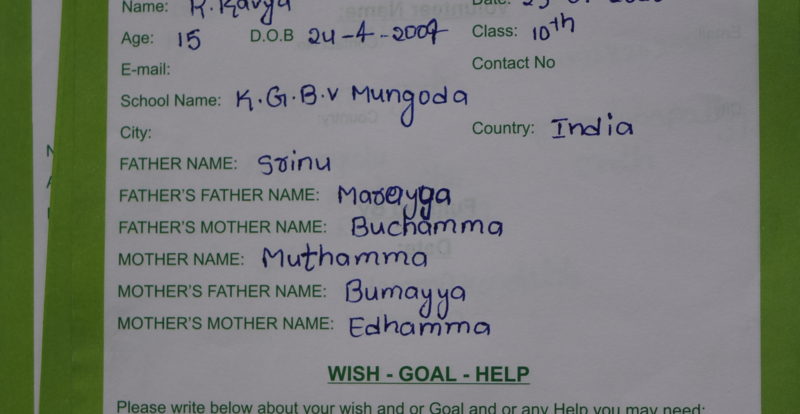 Name: K. Kavya Date:
Age: 15 D.O.B 24-4-2007 Class: 10th
E-mail: Contact No
School Name: K.G.B.V Mungoda
City: Country: India
FATHER NAME: Srinu
FATHER'S FATHER NAME: Marayya
FATHER'S MOTHER NAME: Buchamma
MOTHER NAME: Muthamma
MOTHER'S FATHER NAME: Bumayya
MOTHER'S MOTHER NAME: Edhamma
WISH - GOAL - HELP
Please write below about your wish and or Goal and or any Help you may need: